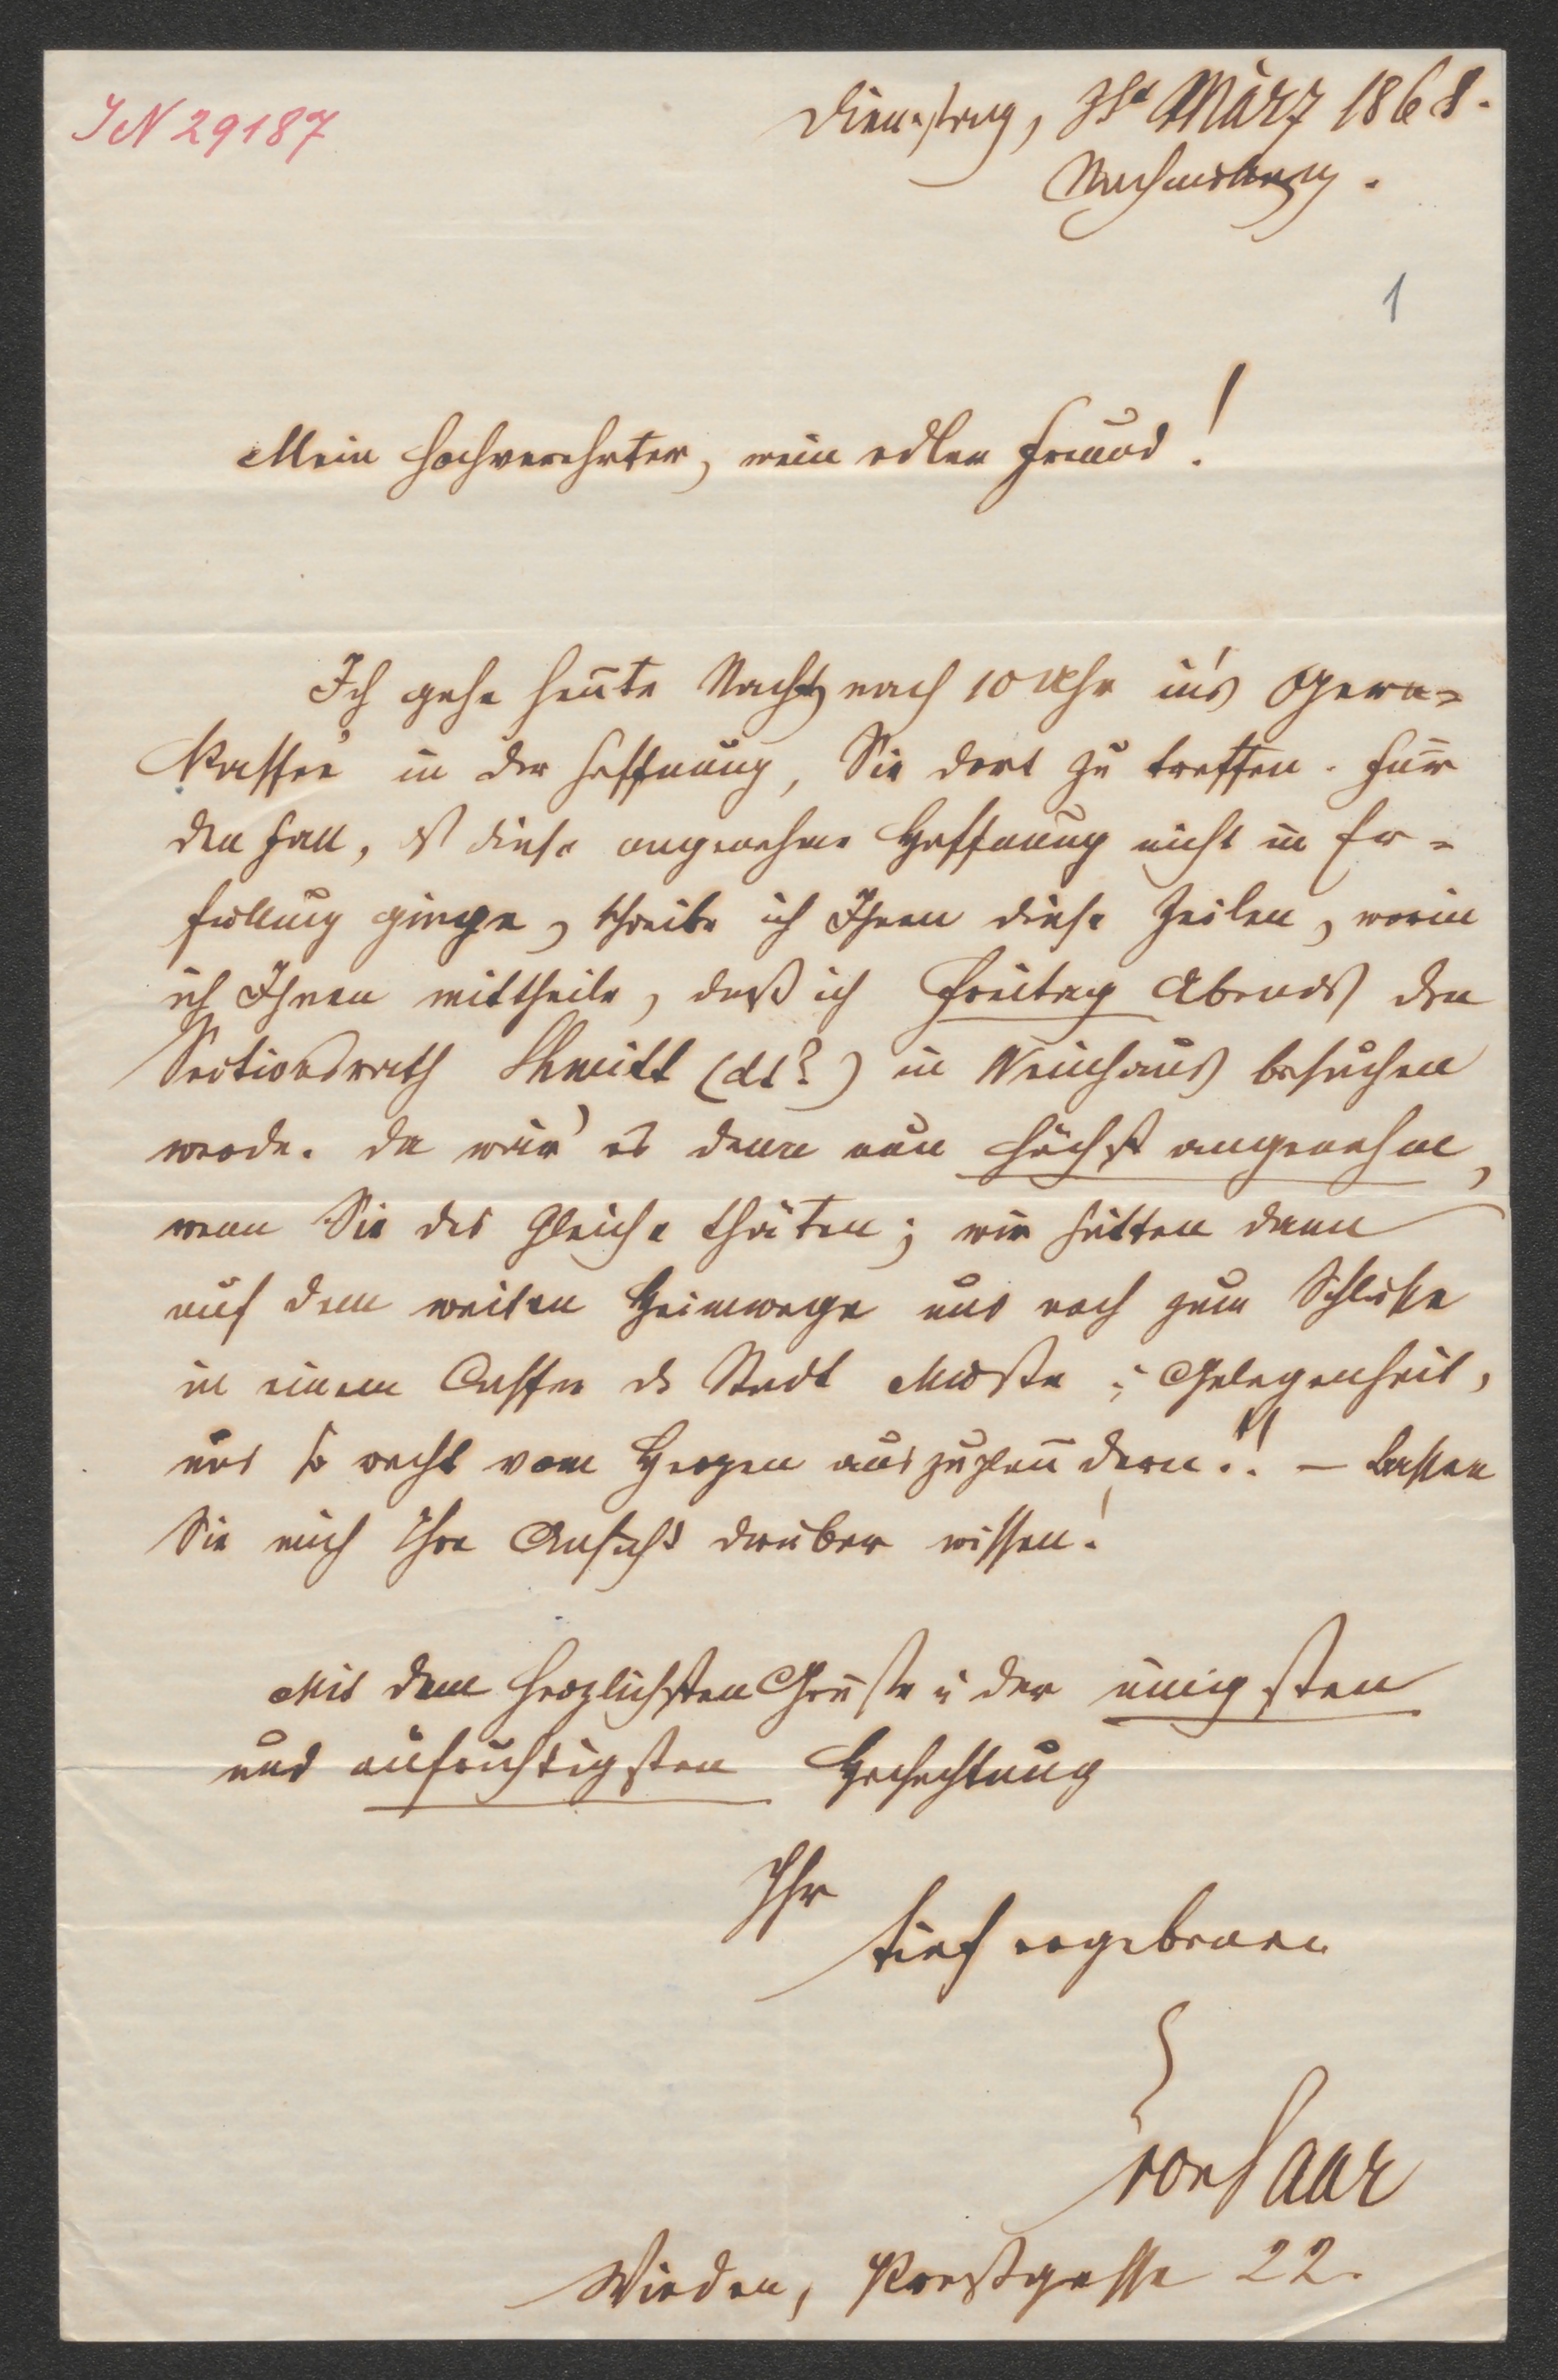 IN 29187
Dienstag, 31t März 1868.
Nachmittag.
1
Mein hochverehrter, mein edler Freund!
Ich gehe heute Nachts nach 10 Uhr in's Opern-
kaffee in der Hoffnung, Sie dort zu treffen. Für
den Fall, daß diese angenehme Hoffnung nicht in Er-
füllung ginge, schreibe ich Ihnen diese Zeilen, worin
ich Ihnen mittheile, daß ich Freitag Abends den
Sectionsrath Schmitt (dt?) in Weinhaus besuchen
werde. Da wär' es denn nun höchst angenehm,
wenn Sie das Gleiche thäten; wir hätten dann
auf dem weiten Heimwege und noch zum Schluße
in einem Caffee der Stadt Muße u Gelegenheit,
uns so recht vom Herzen auszuplaudern!! – Lassen
Sie mich Ihre Ansicht darüber wissen!
Mit dem herzlichsten Gruße u der innigsten
und aufrichtigsten Hochachtung
Ihr
tief ergebener
von Saar
Wieden, Preßgasse 22.